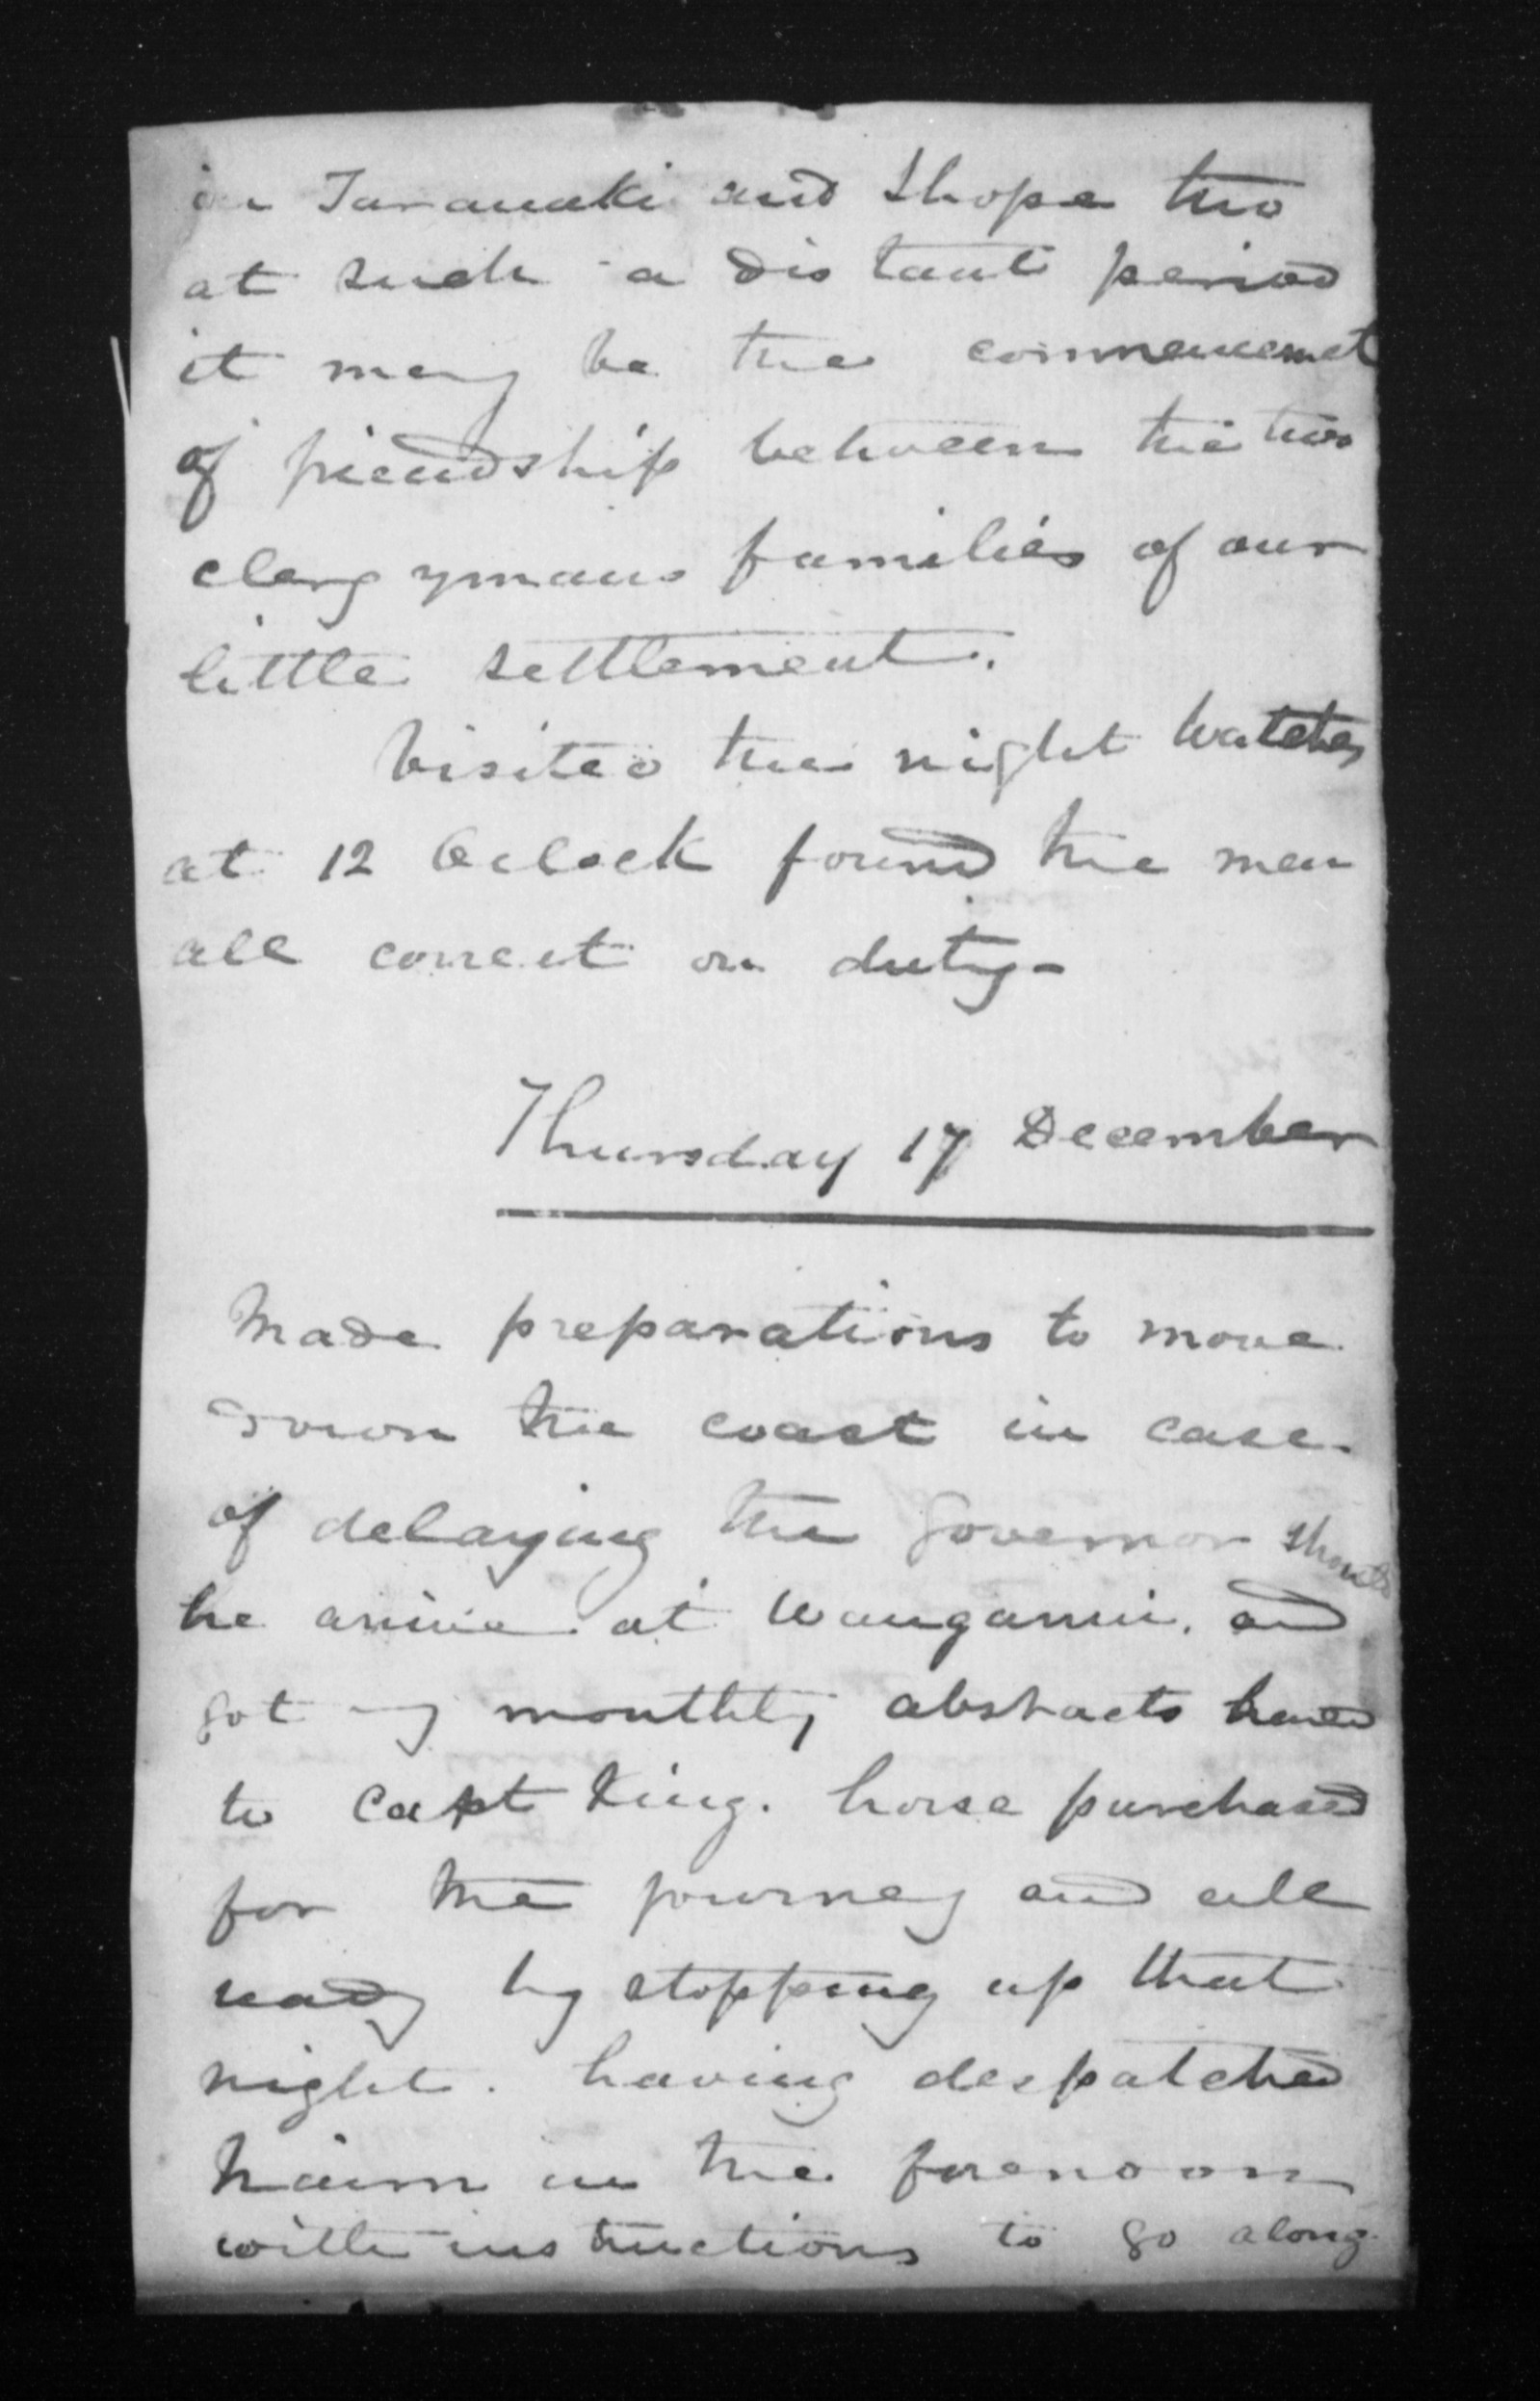 in Taranaki and I hope tho
at such a distant period
it may be the commencemet
of friendship between the two
clergymans families of our
little settlement.
Visited the night Watches
at 12 Oclock found the men
all correct on duty-
Thursday 17 December
Made preparations to move
down the coast in case
of delaying the Governor should
he arrive at Wanganui. and
got my monthly abstracts
to Capt King. horse purchased
for the journey and all
ready by stopping up that
night. having despatched
in the forenoon
with instructions to go along